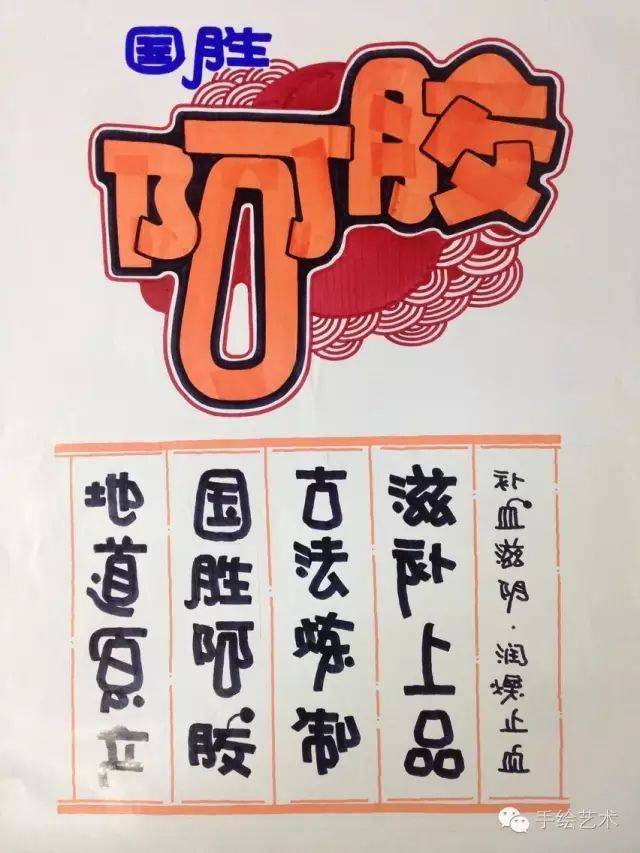 国胜
阿胶
补血滋阴·润燥止血
滋补上品
古法炼制
国胜阿胶
地道原
手绘艺术